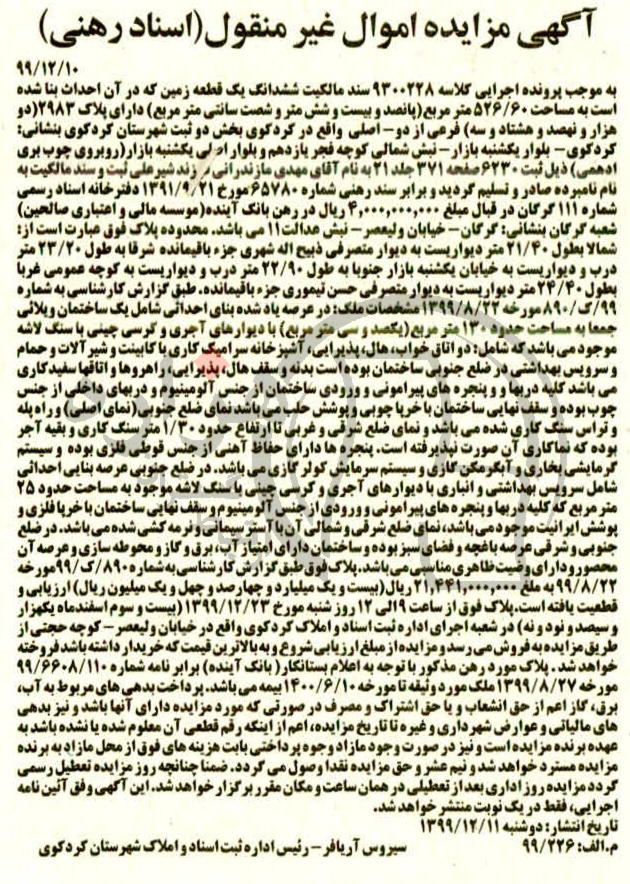 آگهی مزایده اموال غیر منقول(اسناد رهنی)
۹۹/۱۲/۱۰
به موجب پرونده اجرایی کلاسه ۹۳۰۰۲۲۸ سند مالکیت ششدانگ یک قطعه زمین که در آن احداث بنا شده
است به مساحت ۵۲۶/۶۰ متر مربع(پانصد و بیست و شش متر و شصت سانتی متر مربع) دارای پلاک ۲۹۸۳(دو
هزار و نهصد و هشتاد و سه) فرعی از دو- اصلی واقع در کردکوی بخش دو ثبت شهرستان کردکوی بنشانی:
کردکوی- بلوار یکشنبه بازار- نبش شمالی کوچه فجر یازدهم و بلوار اصلی یکشنبه بازار(روبروی چوب بری
ادهمی) ذیل ثبت ۶۲۳۰ صفحه ۳۷۱ جلد ۲۱ به نام آقای مهدی مازندرانی فرزند شیرعلی ثبت و سند مالکیت به
نام نامبرده صادر و تسلیم گردید و برابر سند رهنی شماره ۶۵۷۸۰ مورخ ۱۳۹۱/۹/۲۱ دفترخانه اسناد رسمی
شماره ۱۱۱ گرگان در قبال مبلغ ۴,۰۰۰,۰۰۰,۰۰۰ ریال در رهن بانک آینده(موسسه مالی و اعتباری صالحین)
شعبه گرگان بنشانی: گرگان- خیابان ولیعصر- نبش عدالت۱۱ می باشد. محدوده پلاک فوق عبارت است از:
شمالا بطول ۲۱/۴۰ متر دیواریست به دیوار متصرفی ذبیح اله شهری جزء باقیمانده شرقا به طول ۲۳/۲۰ متر
درب و دیواریست به خیابان یکشنبه بازار جنوبا به طول ۲۲/۹۰ متر درب و دیواریست به کوچه عمومی غربا
بطول ۲۴/۴۰ متر دیواریست به دیوار متصرفی حسن تیموری جزء باقیمانده. طبق گزارش کارشناسی به شماره
۹۹/ک/۸۹۰ مورخه ۱۳۹۹/۸/۲۲ مشخصات ملک: در عرصه یاد شده بنای احداثی شامل یک ساختمان ویلائی
جمعا به مساحت حدود ۱۳۰ متر مربع(یکصد و سی متر مربع) با دیوارهای آجری و کرسی چینی با سنگ لاشه
موجود می باشد که شامل: دو اتاق خواب، هال، پذیرایی، آشپزخانه سرامیک کاری با کابینت و شیرآلات و حمام
و سرویس بهداشتی در ضلع جنوبی ساختمان بوده است بدنه و سقف هال، پذیرایی، راهروها و اتاقها سفیدکاری
می باشد کلیه دربها و پنجره های پیرامونی و ورودی ساختمان از جنس آلومینیوم و دربهای داخلی از جنس
چوب بوده و سقف نهایی ساختمان با خرپا چوبی و پوشش حلب می باشد نمای ضلع جنوبی(نمای اصلی) و راه پله
و تراس سنگ کاری شده می باشد و نمای ضلع شرقی و غربی تا ارتفاع حدود ۱/۳۰ متر سنگ کاری و بقیه آجر
بوده که نماکاری آن صورت نپذیرفته است. پنجره ها دارای حفاظ آهنی از جنس قوطی فلزی بوده و سیستم
گرمایشی بخاری و آبگرمکن گازی و سیستم سرمایش کولر گازی می باشد. در ضلع جنوبی عرصه بنایی احداثی
شامل سرویس بهداشتی و انباری با دیوارهای آجری و کرسی چینی با سنگ لاشه موجود به مساحت حدود ۲۵
متر مربع که کلیه دربها و پنجره های پیرامونی و ورودی از جنس آلومینیوم و سقف نهایی ساختمان با خرپا فلزی و
پوشش ایرانیت موجود می باشد، نمای ضلع شرقی و شمالی آن با آستر سیمانی و نرمه کشی شده می باشد. در ضلع
جنوبی و شرقی عرصه باغچه و فضای سبز بوده و ساختمان دارای امتیاز آب، برق و گاز و محوطه سازی و عرصه آن
محصور و دارای وضیت ظاهری مناسبی می باشد. پلاک فوق طبق گزارش کارشناسی به شماره ۸۹۰/ک/۹۹ مورخه
۹۹/۸/۲۲ به مبلغ ۲۱,۴۴۱,۰۰۰,۰۰۰ ریال(بیست و یک میلیارد و چهارصد و چهل و یک میلیون ریال) ارزیابی و
قطعیت یافته است. پلاک فوق از ساعت ۹ الی ۱۲ روز شنبه مورخ ۱۳۹۹/۱۲/۲۳ (بیست و سوم اسفندماه یکهزار
و سیصد و نود و نه) در شعبه اجرای اداره ثبت اسناد و املاک کردکوی واقع در خیابان ولیعصر- کوچه حجتی از
طریق مزایده به فروش می رسد و مزایده از مبلغ ارزیابی شروع و به بالاترین قیمت که خریدار داشته باشد فروخته
خواهد شد. پلاک مورد رهن مذکور با توجه به اعلام بستانکار( بانک آینده) برابر نامه شماره ۹۹/۶۶۰۸/۱۱۰
مورخه ۱۳۹۹/۸/۲۷ ملک مورد وثیقه تا مورخه ۱۴۰۰/۶/۱۰ بیمه می باشد. پرداخت بدهی های مربوط به آب،
برق، گاز اعم از حق انشعاب و یا حق اشتراک و مصرف در صورتی که مورد مزایده دارای آنها باشد و نیز بدهی
های مالیاتی و عوارض شهرداری و غیره تا تاریخ مزایده، اعم از اینکه رقم قطعی آن معلوم شده یا نشده باشد به
عهده برنده مزایده است و نیز در صورت وجود مازاد وجوه پرداختی بابت هزینه های فوق از محل مازاد به برنده
مزایده مسترد خواهد شد و نیم عشر و حق مزایده نقدا وصول می گردد. ضمنا چنانچه روز مزایده تعطیل رسمی
گردد مزایده روز اداری بعد از تعطیلی در همان ساعت و مکان مقرر برگزار خواهد شد. این آگهی وفق آئین نامه
اجرایی، فقط در یک نوبت منتشر خواهد شد.
تاریخ انتشار: دوشنبه ۱۳۹۹/۱۲/۱۱
م.الف: ۹۹/۲۲۶ سیروس آریافر- رئیس اداره ثبت اسناد و املاک شهرستان کردکوی